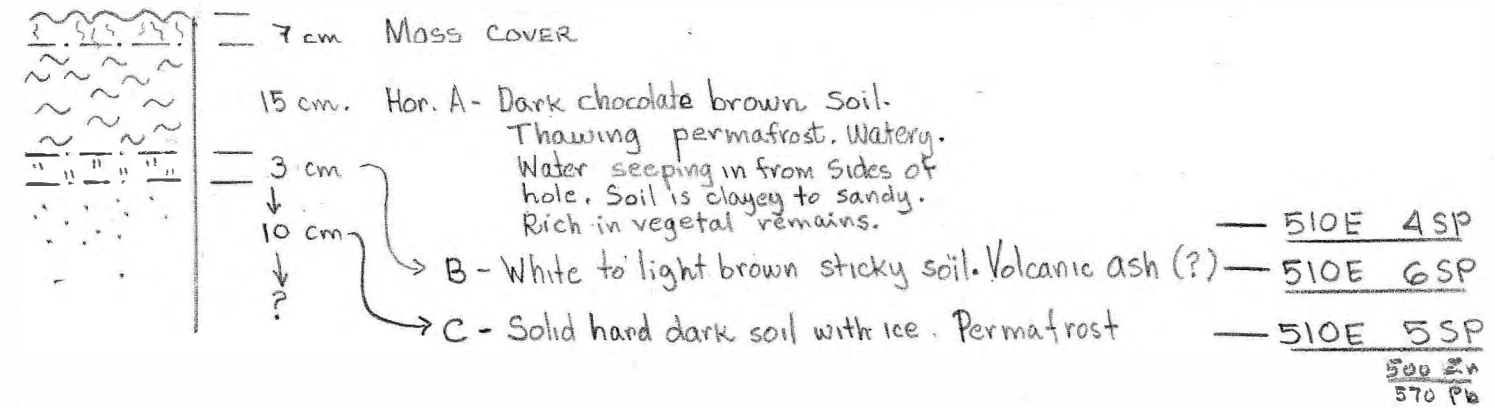 7 cm Moss COVER
15 cm. Hor. A - Dark chocolate brown soil.
Thawing permafrost. Watery.
3 cm Water seeping in from sides of
hole. Soil is clayey to sandy.
10 cm Rich in vegetal remains. — 510E 4SP
B - White to light brown sticky soil. Volcanic ash (?) — 510E 6SP
?
C - Solid hard dark soil with ice. Permafrost — 510E 5SP
500 Zn
570 Pb